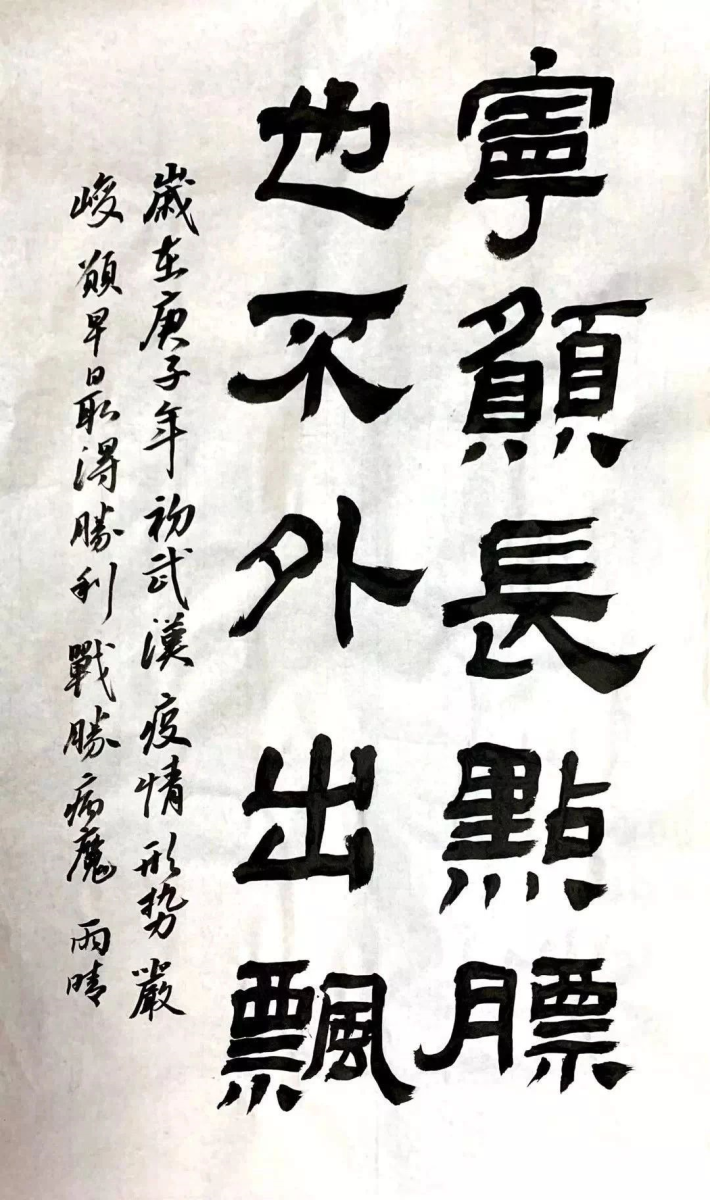 寧願長點膘
也不外出飄
歲在庚子年初武漢疫情形势嚴
峻願早日取得勝利戰勝病魔雨晴